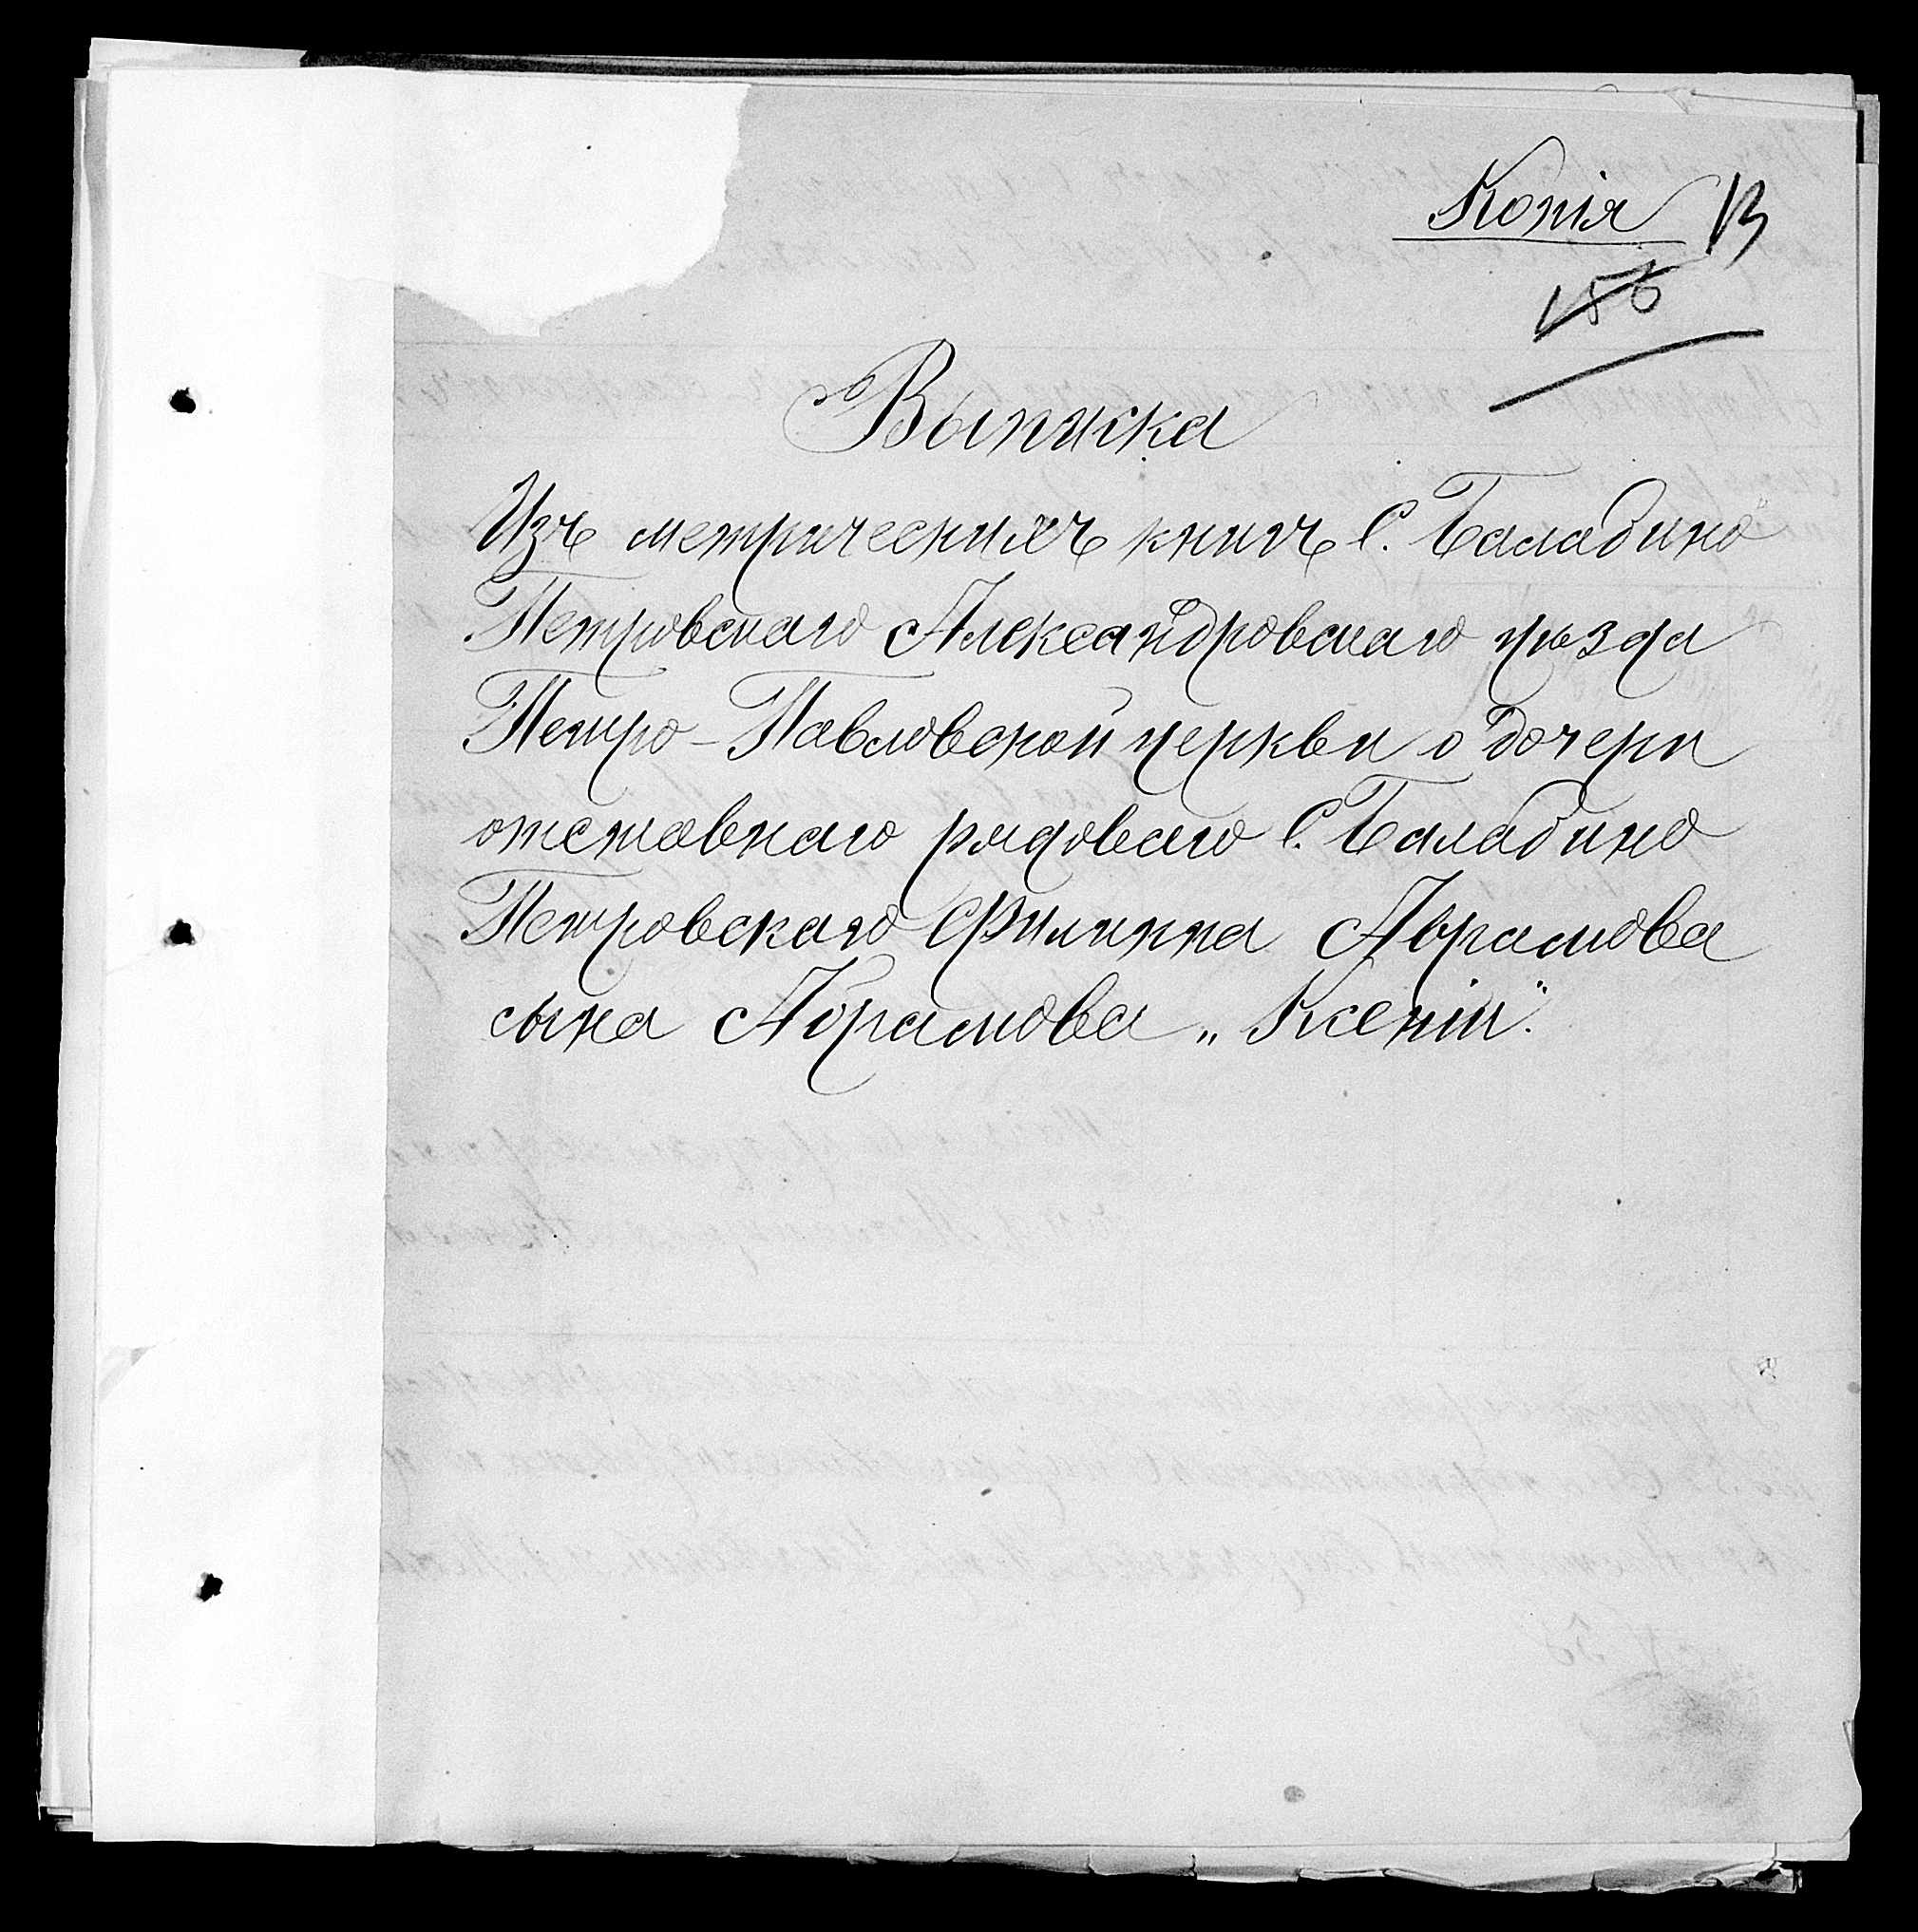 Копія 13
156
Выписка
Изъ метрическихъ книгъ С. Балабино
Петровскаго Александровскаго уѣзда
Петро-Павловской церкви о дочери
отставнаго рядоваго С. Балабино
Петровскаго Филиппа Абрамова
сына Абрамова „Ксеніи".